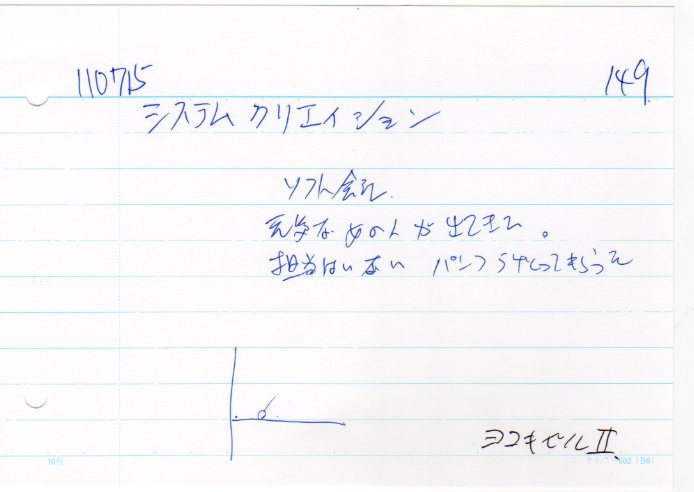 110715
149
システムクリエイション
ソフト会社
元気な女の人が出てきた。
担当はいない パンフうけとってもらった
ヨコキセルⅡ
10行
602 (B6)